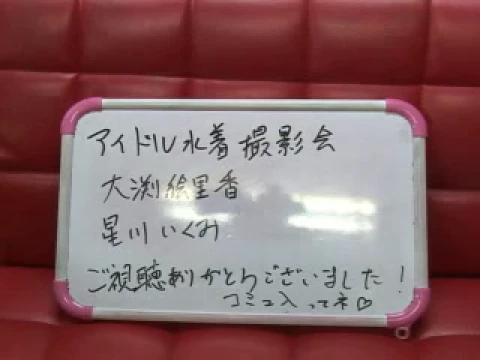 アイドル水着撮影会
大渕絵里香
星川いくみ
ご視聴ありがとうございました!
コミュ入ってネ♡